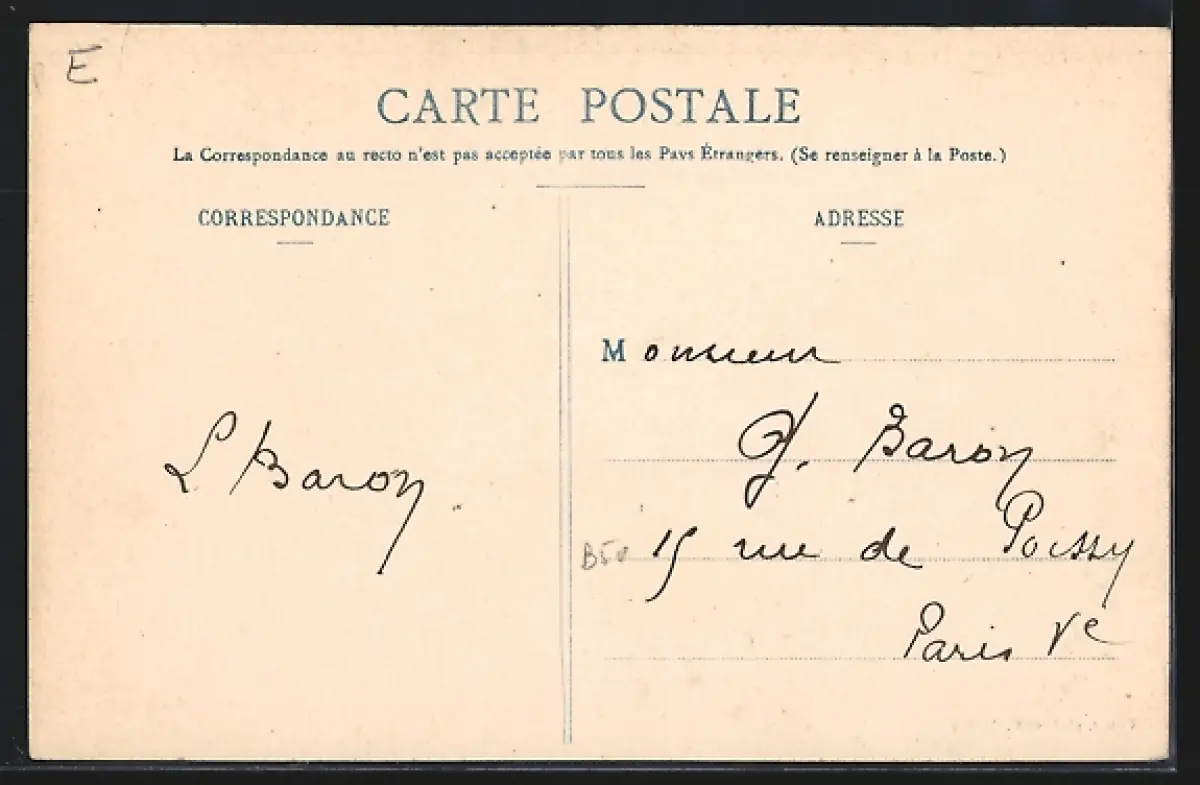 E
CARTE POSTALE
La Correspondance au recto n'est pas acceptée par tous les Pays Étrangers. (Se renseigner à la Poste.)
CORRESPONDANCE
L Baron
ADRESSE
Monsieur
G. Baron
15 rue de Poissy
Paris Ve
B50